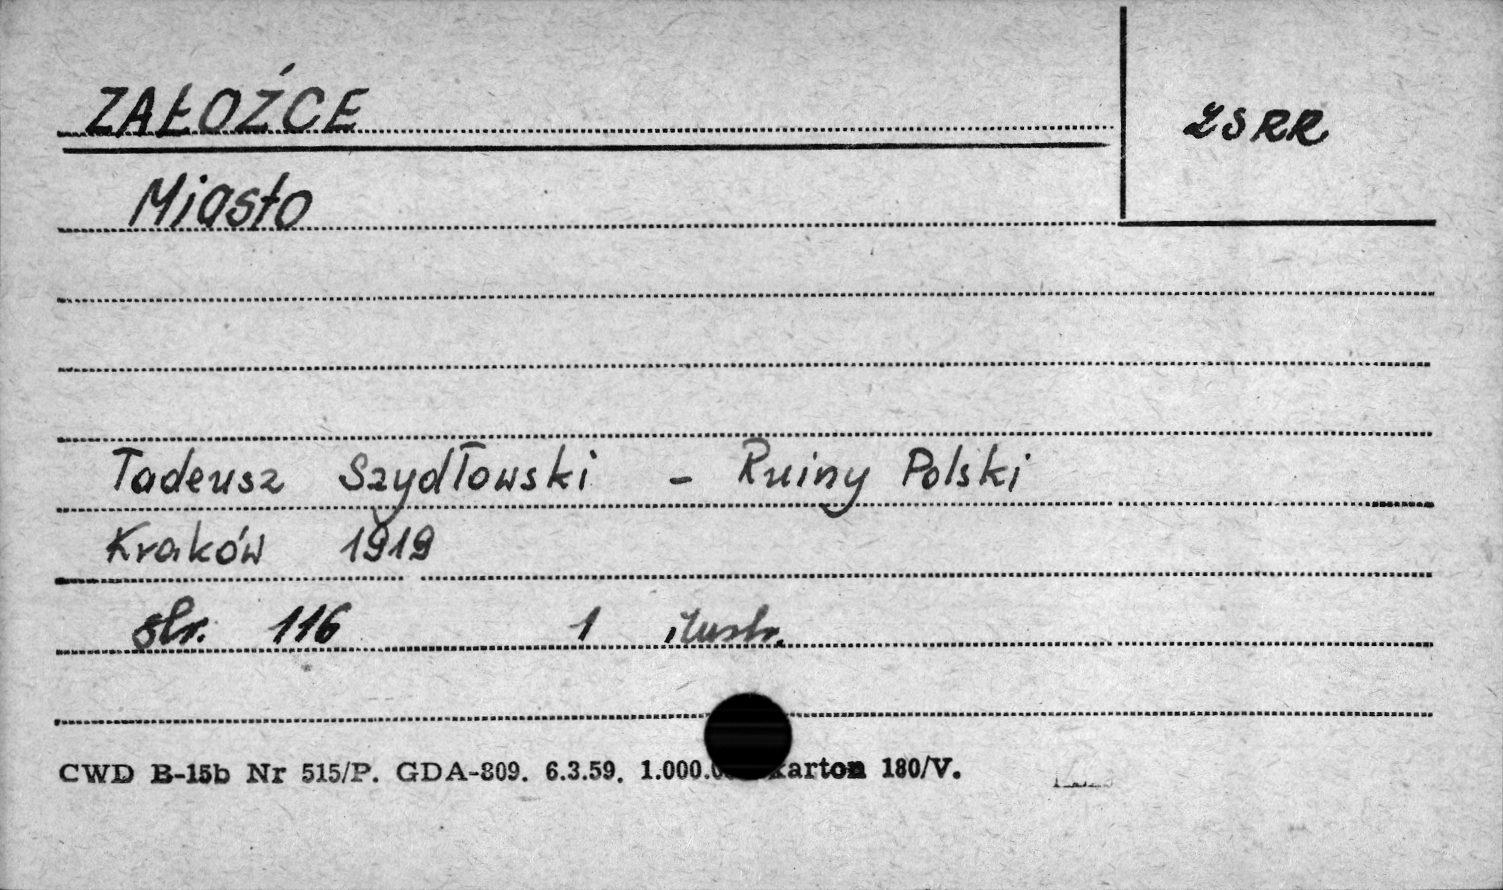 ZAŁOŹCE
ZSRR
Miasto
Tadeusz Szydłowski - Ruiny Polski
Kraków 1919
str. 116 1 ilustr.
CWD B-15b Nr 515/P. GDA-809. 6.3.59. karton 180/V.